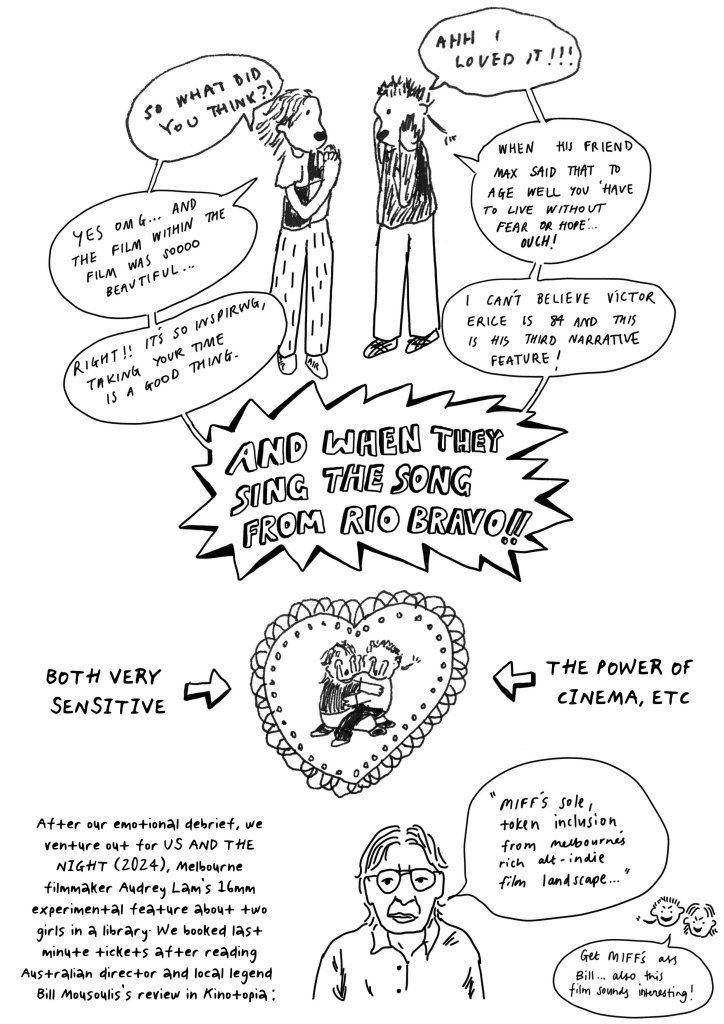 SO WHAT DID
YOU THINK?!
AHH I
LOVED IT!!!
WHEN HIS FRIEND
MAX SAID THAT TO
AGE WELL YOU 'HAVE
TO LIVE WITHOUT
FEAR OR HOPE'...
OUCH!
YES OMG... AND
THE FILM WITHIN THE
FILM WAS SOOOO
BEAUTIFUL...
I CAN'T BELIEVE VÍCTOR
ERICE IS 84 AND THIS
IS HIS THIRD NARRATIVE
FEATURE!
RIGHT!! IT'S SO INSPIRING,
TAKING YOUR TIME
IS A GOOD THING.
AIR
AND WHEN THEY
SING THE SONG
FROM RIO BRAVO!!
BOTH VERY
SENSITIVE
THE POWER OF
CINEMA, ETC
After our emotional debrief, we
venture out for US AND THE
NIGHT (2024), Melbourne
filmmaker Audrey Lam's 16mm
experimental feature about two
girls in a library. We booked last
minute tickets after reading
Australian director and local legend
Bill Mousoulis's review in Kinotopia:
"MIFF's sole,
token inclusion
from melbourne's
rich alt-indie
film landscape..."
Get MIFF's ass
Bill... also this
film sounds interesting!